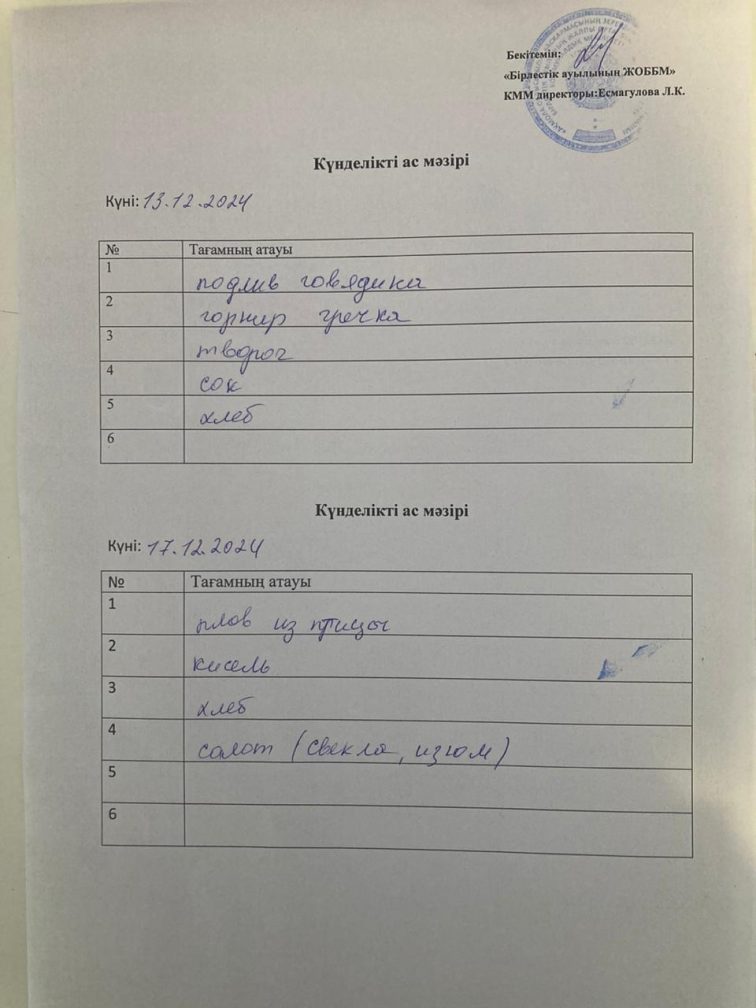 Бекітемін:
«Бірлестік ауылының ЖОББМ»
КММ директоры:Есмагулова Л.К.
Күнделікті ас мәзірі
Күні: 13.12.2024
№ Тағамның атауы
1 подлив говядина
2 горнир гречка
3 творог
4 сок
5 хлеб
6
Күнделікті ас мәзірі
Күні: 17.12.2024
№ Тағамның атауы
1 плов из птицы
2 кисель
3 хлеб
4 салат (свекла, изюм)
5
6